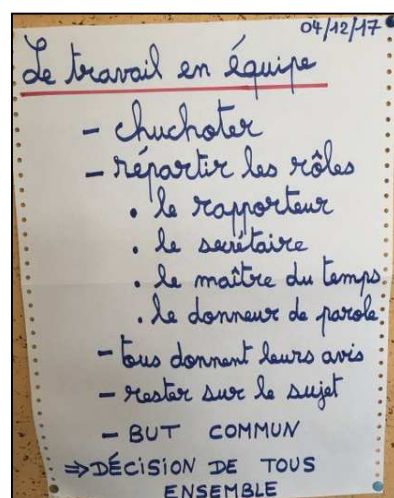 04/12/17
Le travail en équipe
- chuchoter
- répartir les rôles
• le rapporteur
• le secrétaire
• le maître du temps
• le donneur de parole
- tous donnent leurs avis
- rester sur le sujet
- BUT COMMUN
⇒ DÉCISION DE TOUS
ENSEMBLE